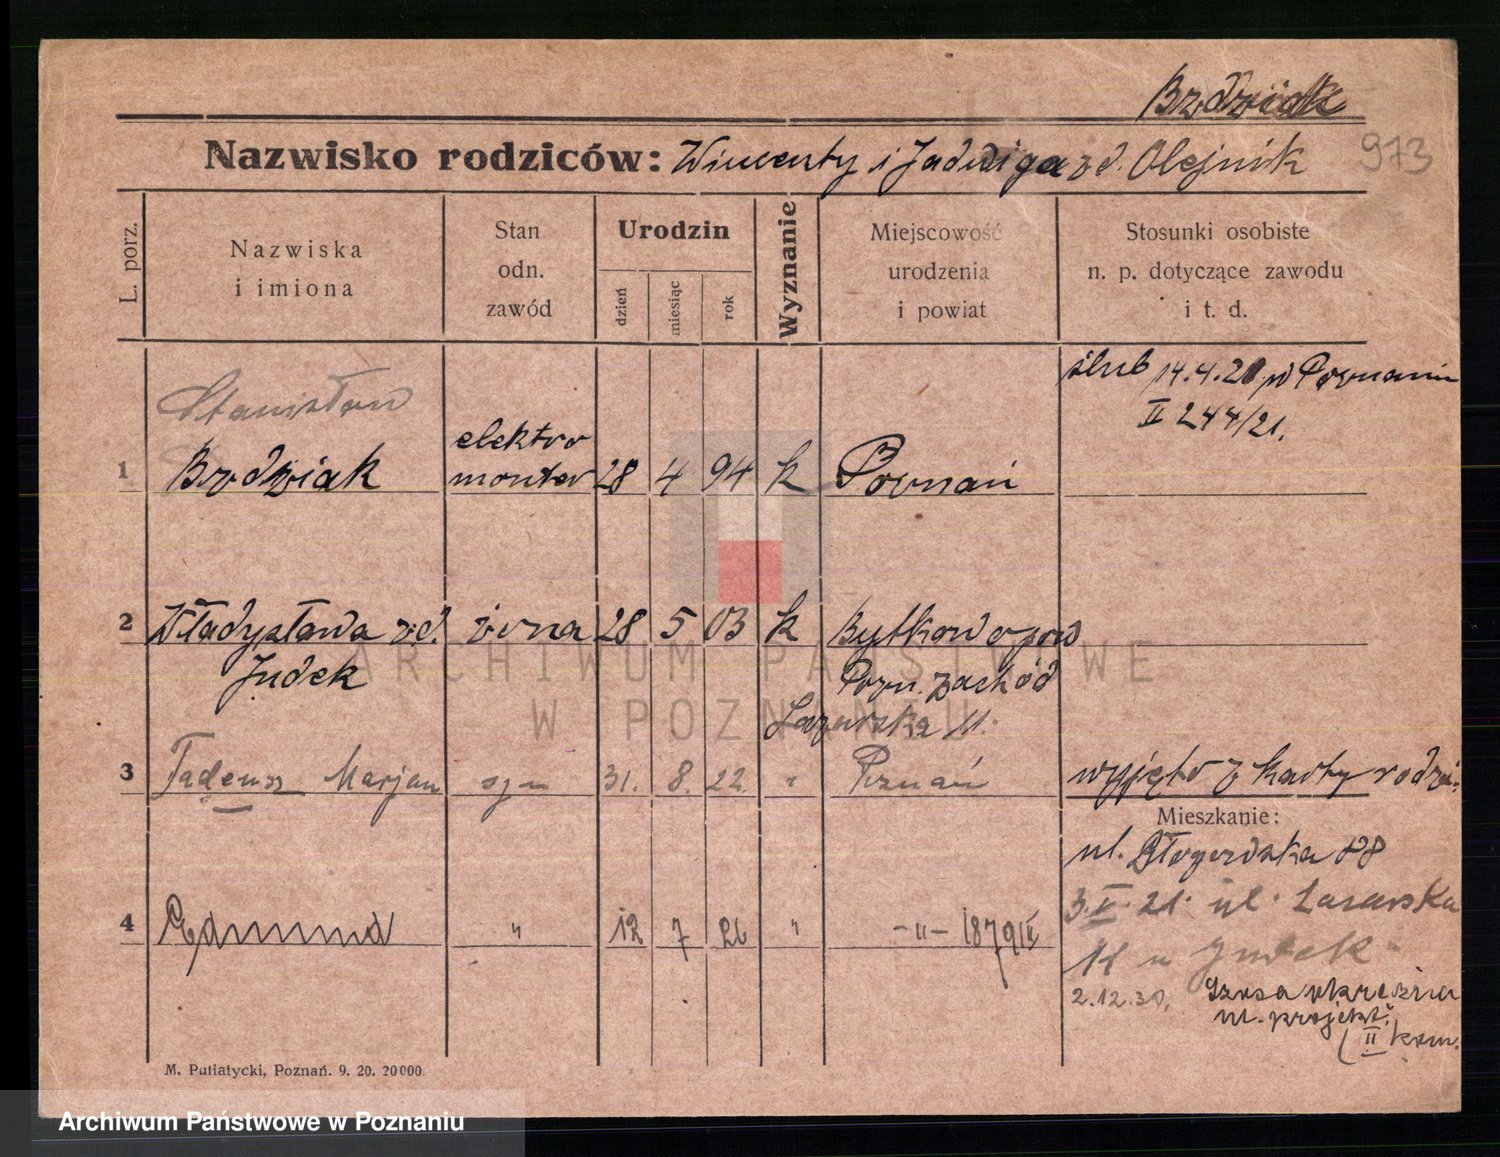 Brdziak
Nazwisko rodziców: Wincenty i Jadwiga zd. Olejnik 973
L. porz.
Nazwiska
i imiona
Stan
odn.
zawód
Urodzin
dzień
miesiąc
rok
Wyznanie
Miejscowość
urodzenia
i powiat
Stosunki osobiste
n. p. dotyczące zawodu
i t. d.
ślub 14.4.21 w Poznaniu
II 244/21.
Stanisław
elektro
1 Brdziak monter 28 4 94 k Poznań
2 Władysława zd. żona 28 5 03 k Bytkowo pow
Judek Pozn. zachód
Lazarska 11.
3 Tadeusz Marjan syn 31. 8. 22 " Poznań wyjęto z karty rodzi.
Mieszkanie:
ul. 88
4 Edmund " 12 7 26 " -"- 1879 II
3.II.21. ul. Lazarska
11 u Judek
2.12.30, Szosa okrężna
ul. projekt.
(II kom.
M. Putiatycki, Poznań. 9. 20. 20000.
ARCHIWUM PAŃSTWOWE
W POZNANIU
Archiwum Państwowe w Poznaniu